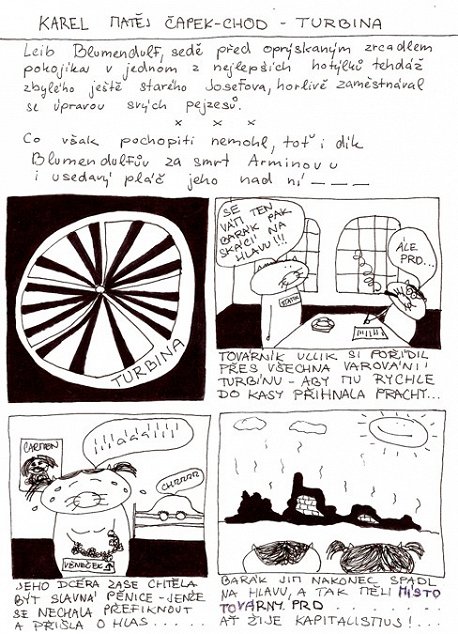 KAREL MATĚJ ČAPEK-CHOD - TURBINA
Leib Blumendulf, sedě před oprýskaným zrcadlem
pokojíka v jednom z nejlepších hotýlků tehdáž
zbylého ještě starého Josefova, horlivě zaměstnával
se úpravou svých pejzesů.
x x x
Co však pochopiti nemohl, toť i dík
Blumendulfův za smrt Arminovu
i usedavý pláč jeho nad ní ———
TURBINA
SE
VÁM TEN
BARÁK PAK
SKÁCÍ NA
HLAVU!!!
ALE
PRD...
TOVÁRNÍK ULLIK SI POŘÍDIL
PŘES VŠECHNA VAROVÁNÍ
TURBÍNU - ABY MU RYCHLE
DO KASY PŘIHNALA PRACHY...
CARMEN
CHRRRR
VĚNEČEK
JEHO DCERA ZASE CHTĚLA
BÝT SLAVNÁ PĚNICE - JENŽE
SE NECHALA PŘEFIKNOUT
A PŘIŠLA O HLAS.....
BARÁK JIM NAKONEC SPADL
NA HLAVU, A TAK MĚLI MÍSTO
TOVÁRNY PRD..........
AŤ ŽIJE KAPITALISMUS!...